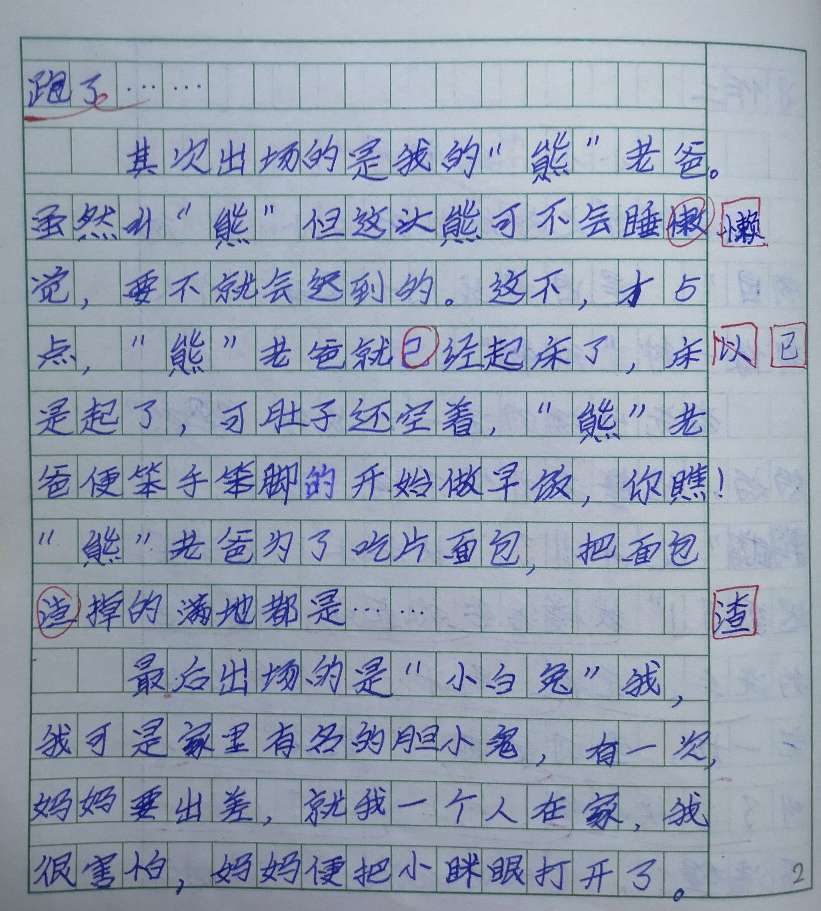 跑了……
其次出场的是我的“熊”老爸。
虽然叫“熊”但这头熊可不会睡懒 懒
觉，要不就会迟到的。这不，才5
点，“熊”老爸就已经起床了，床 以 已
是起了，可肚子还空着，“熊”老
爸便笨手笨脚的开始做早饭，你瞧！
“熊”老爸为了吃片面包，把面包
渣掉的满地都是…… 渣
最后出场的是“小白兔”我，
我可是家里有名的胆小鬼，有一次，
妈妈要出差，就我一个人在家，我
很害怕，妈妈便把小眯眼打开了。
2